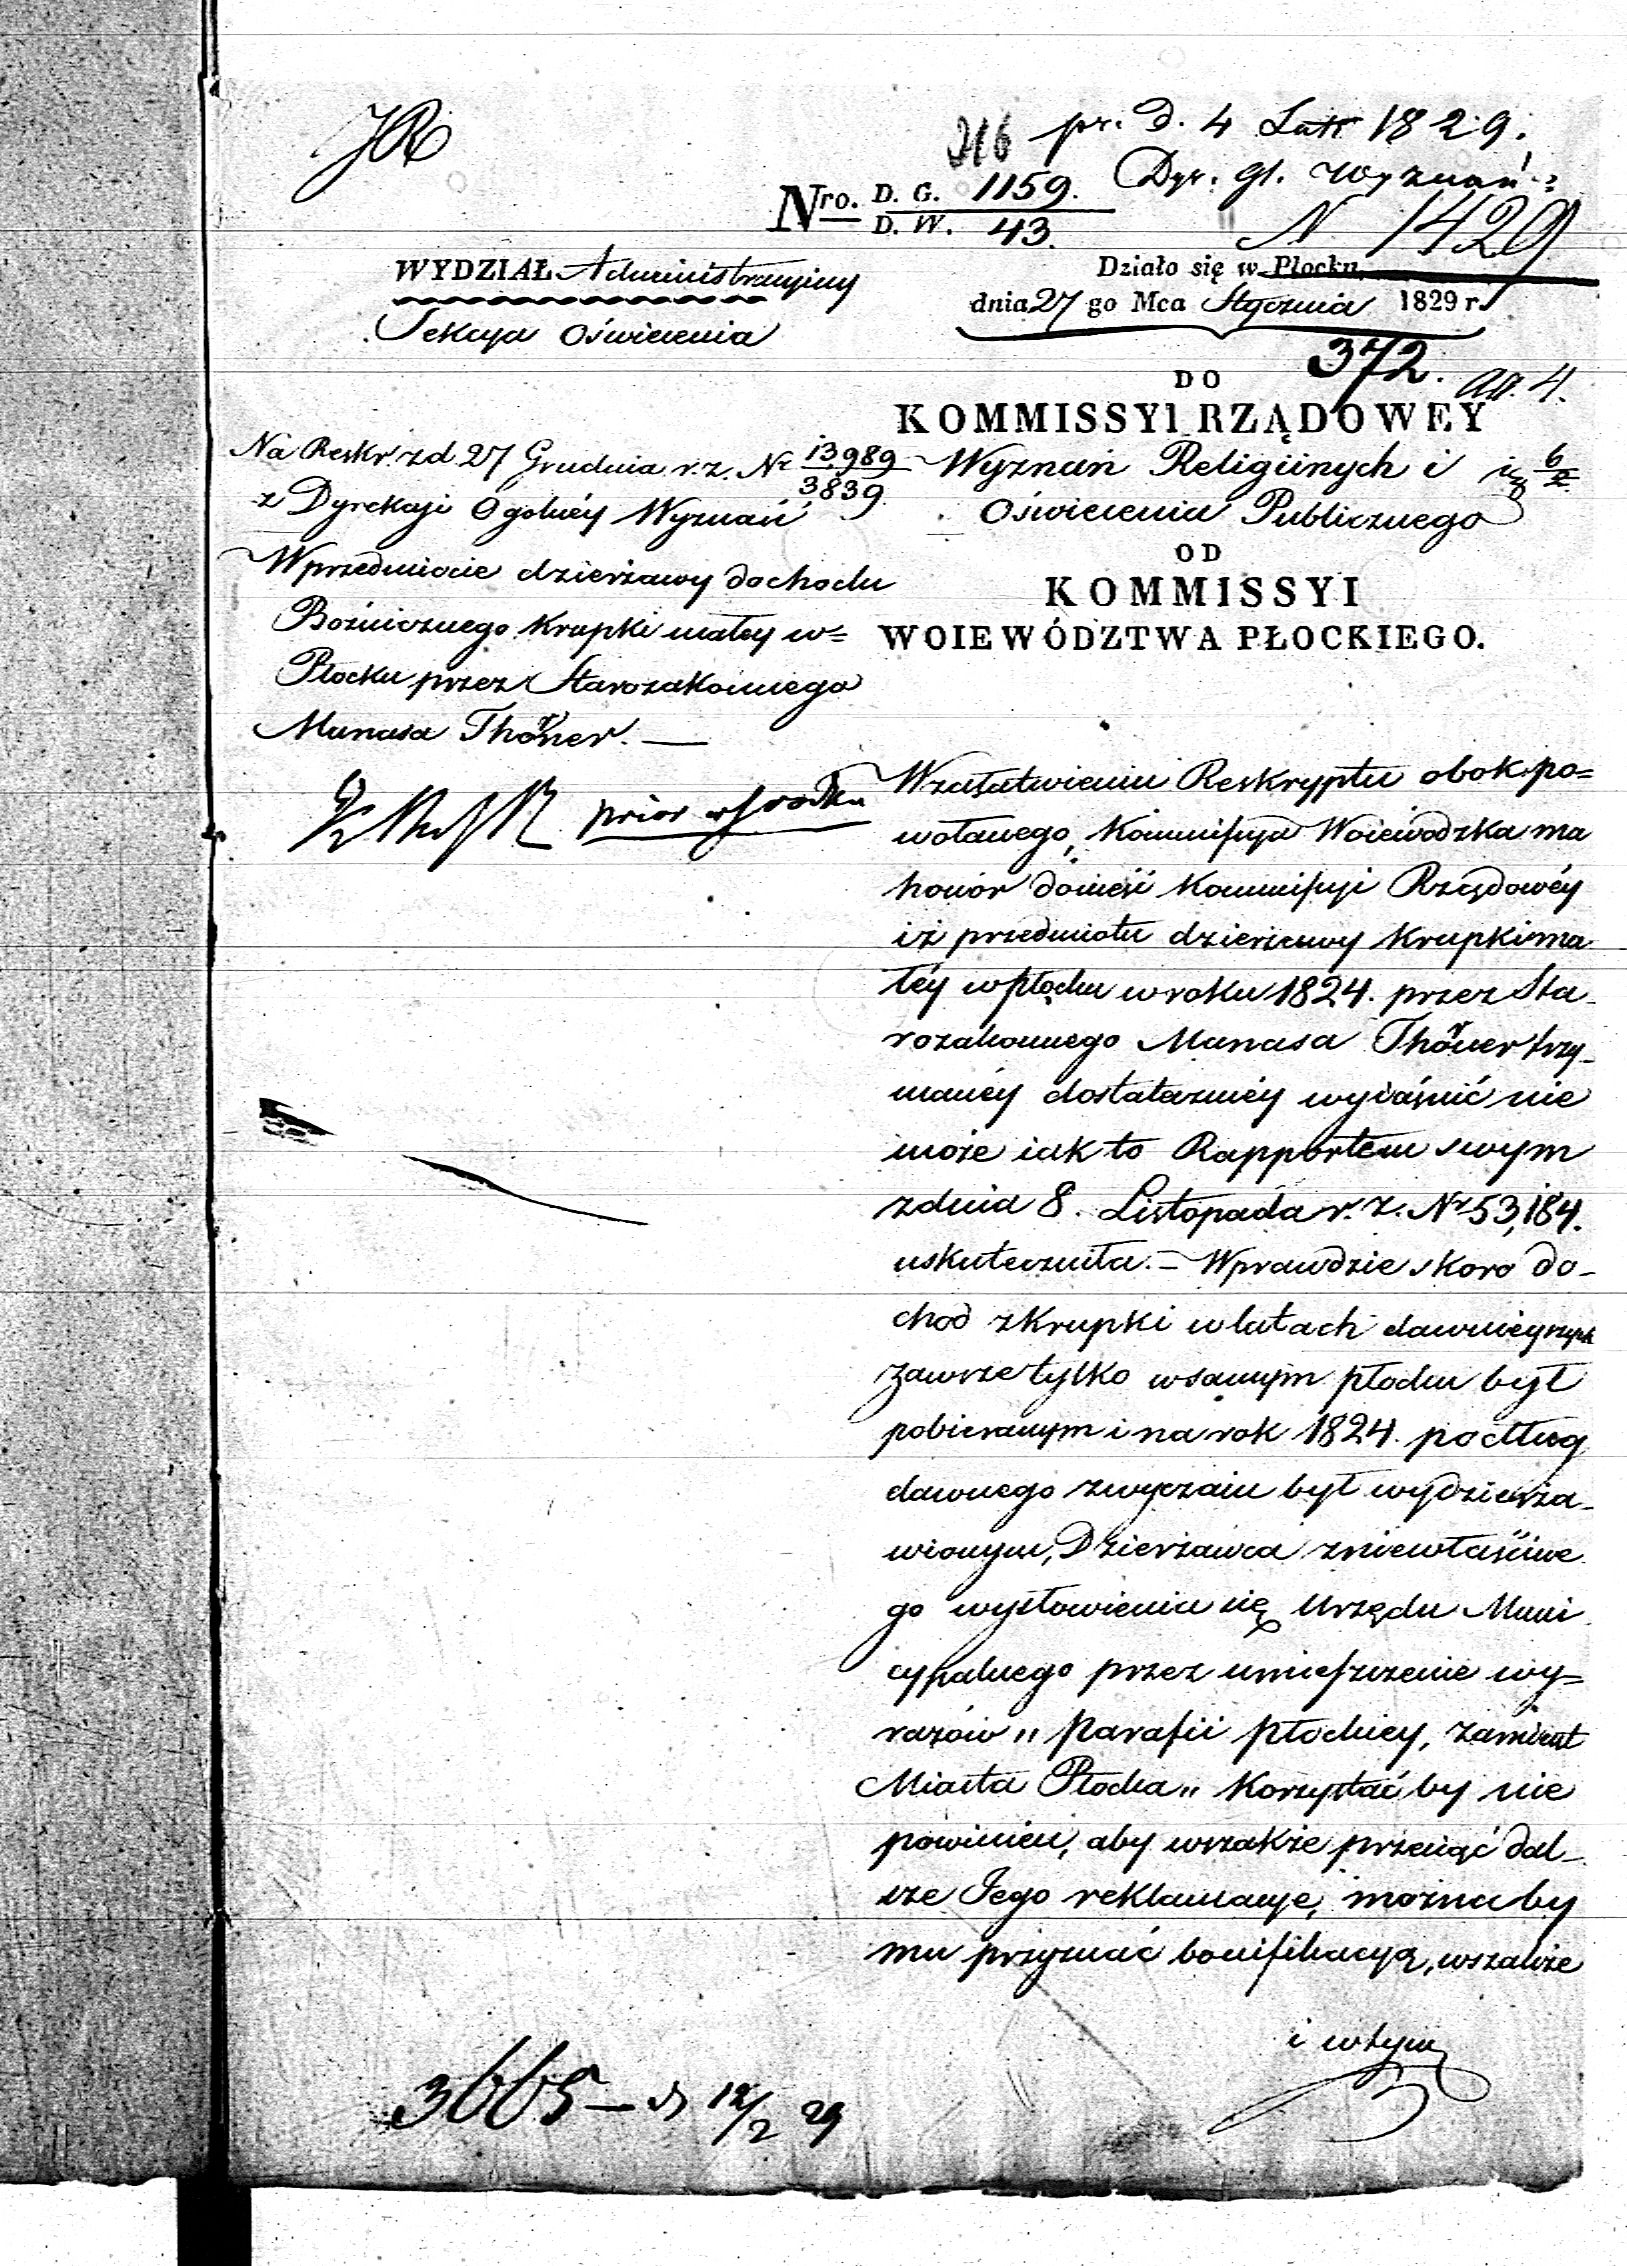 JR
316 pr. D. 4 Lut 1829.
Dyr. gł. Wyznań
N 1429
Nro. D. G. 1159.
D. W. 43.
WYDZIAŁ Administracyiny
Sekcya Oświecenia
Działo się w Płocku
dnia 27 go Mca Stycznia 1829 r.
372.
DO
KOMMISSYI RZĄDOWEY
Wyznań Religiinych i
Oświecenia Publicznego
OD
KOMMISSYI
WOIEWÓDZTWA PŁOCKIEGO.
Na Reskr. z d. 27 Grudnia r. z. Nr 13989/3839.
z Dyrekcyi Ogólnéy Wyznań
W przedmiocie dzierżawy dochodu
Bożnicznego Krupki małey w=
Płocku przez Starozakonnego
Manasa Thöner. —
W załatwieniu Reskryptu obok po=
wołanego, Kommissya Woiewódzka ma
honor donieść Kommissyi Rządowéy
iż przedmiotu dzierżawy Krupki ma
łéy w Płocku w roku 1824. przez Sta-
rozakonnego Manasa Thöner trzy-
manéy dostateczniéy wyiaśnić nie
może iak to Rapportem swym
z dnia 8. Listopada r. z. Nr 53,184.
uskuteczniła. = Wprawdzie skoro do-
chod z Krupki w latach dawnieyszych
zawsze tylko w samym Płocku był
pobieranym i na rok 1824. podług
dawnego zwyczaiu był wydzierża-
wionym, Dzierżawca z niewłaściwe
go wysłowienia się Urzędu Muni
cypalnego przez umieszczenie wy=
razów „ Parafii Płockiey, zamiast
Miasta Płocka „ korzystać by nie
powinien, aby wszakże przeciąć dal-
sze Jego reklamacye, można by
mu przyznać bonifikacyą, wszakże
i w tym
3665 — 12/2 29